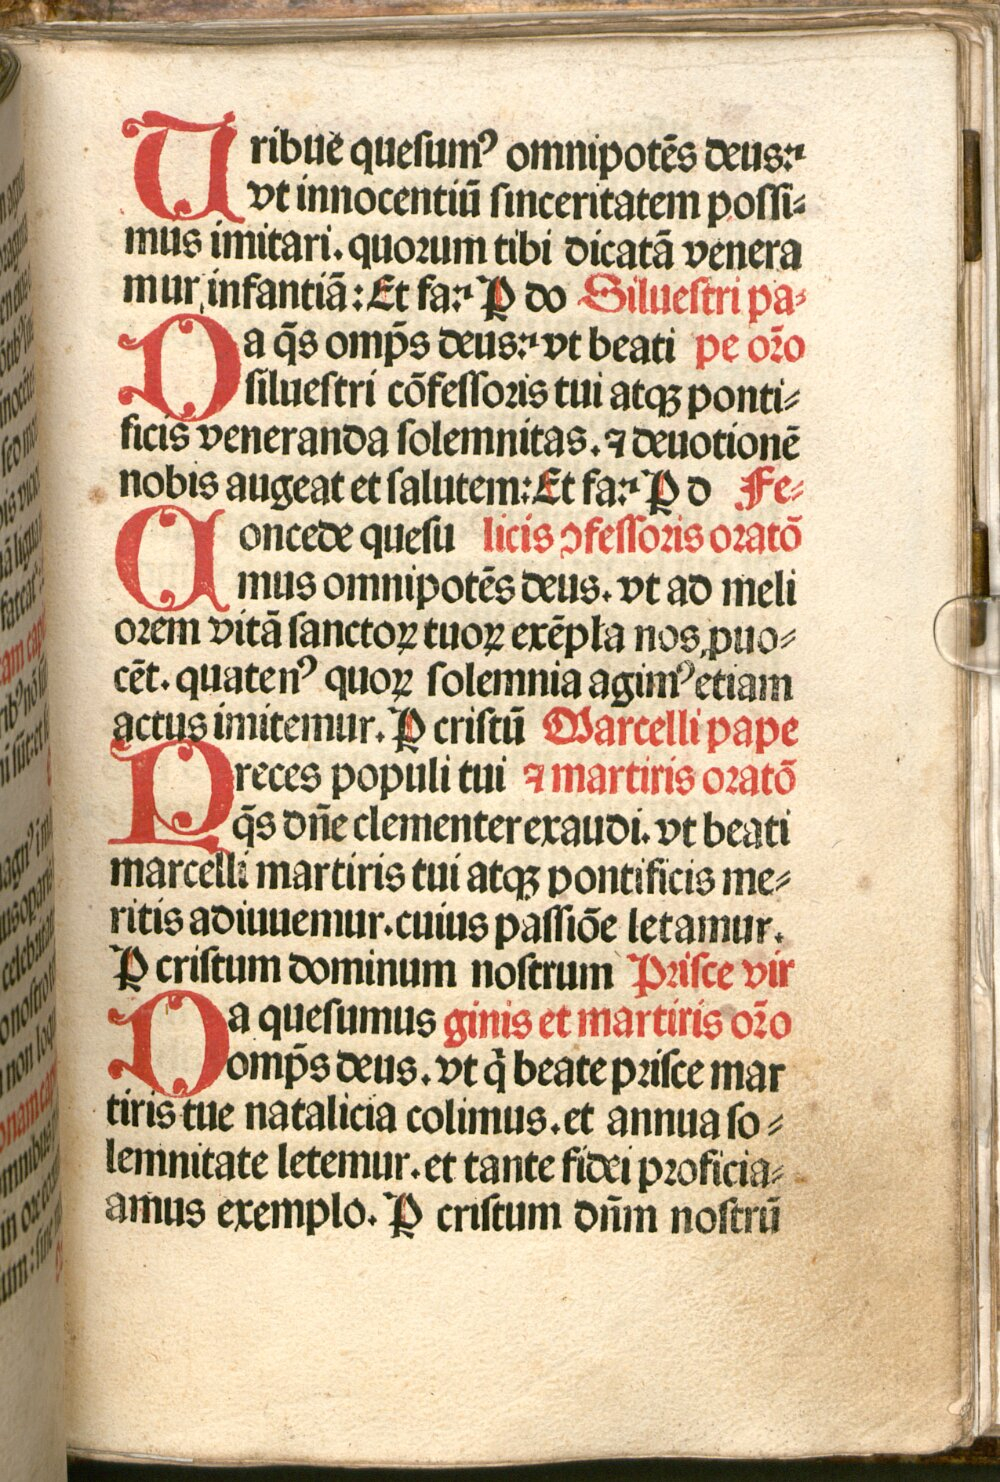 Tribue quesumꝰ omnipotēs deus:⁊
vt innocentiū sinceritatem possi⸗
mus imitari. quorum tibi dicatā venera
mur infantiā: Et fa:⁊ P do Siluestri pa⸗
Da q̄s omp̄s deus:⁊ vt beati pe oro
siluestri cōfessoris tui atqꝫ ponti⸗
ficis veneranda solemnitas. ⁊ deuotionē
nobis augeat et salutem: Et fa:⁊ P d Fe⸗
Concede quesu licis ꝯfessoris oratō
mus omnipotēs deus. vt ad meli
orem vitā sanctoꝝ tuoꝝ exēpla nos ꝓuo⸗
cēt. quatenꝰ quoꝝ solemnia agimꝰ etiam
actus imitemur. P cristū Marcelli pape
Preces populi tui ⁊ martiris oratō
q̄s dn̄e clementer exaudi. vt beati
marcelli martiris tui atqꝫ pontificis me⸗
ritis adiuuemur. cuius passiōe letamur.
P cristum dominum nostrum Prisce vir
Da quesumus ginis et martiris oro
omp̄s deus. vt q̄ beate prisce mar
tiris tue natalicia colimus. et annua so⸗
lemnitate letemur. et tante fidei proficia⸗
amus exemplo. P cristum dn̄m nostrū